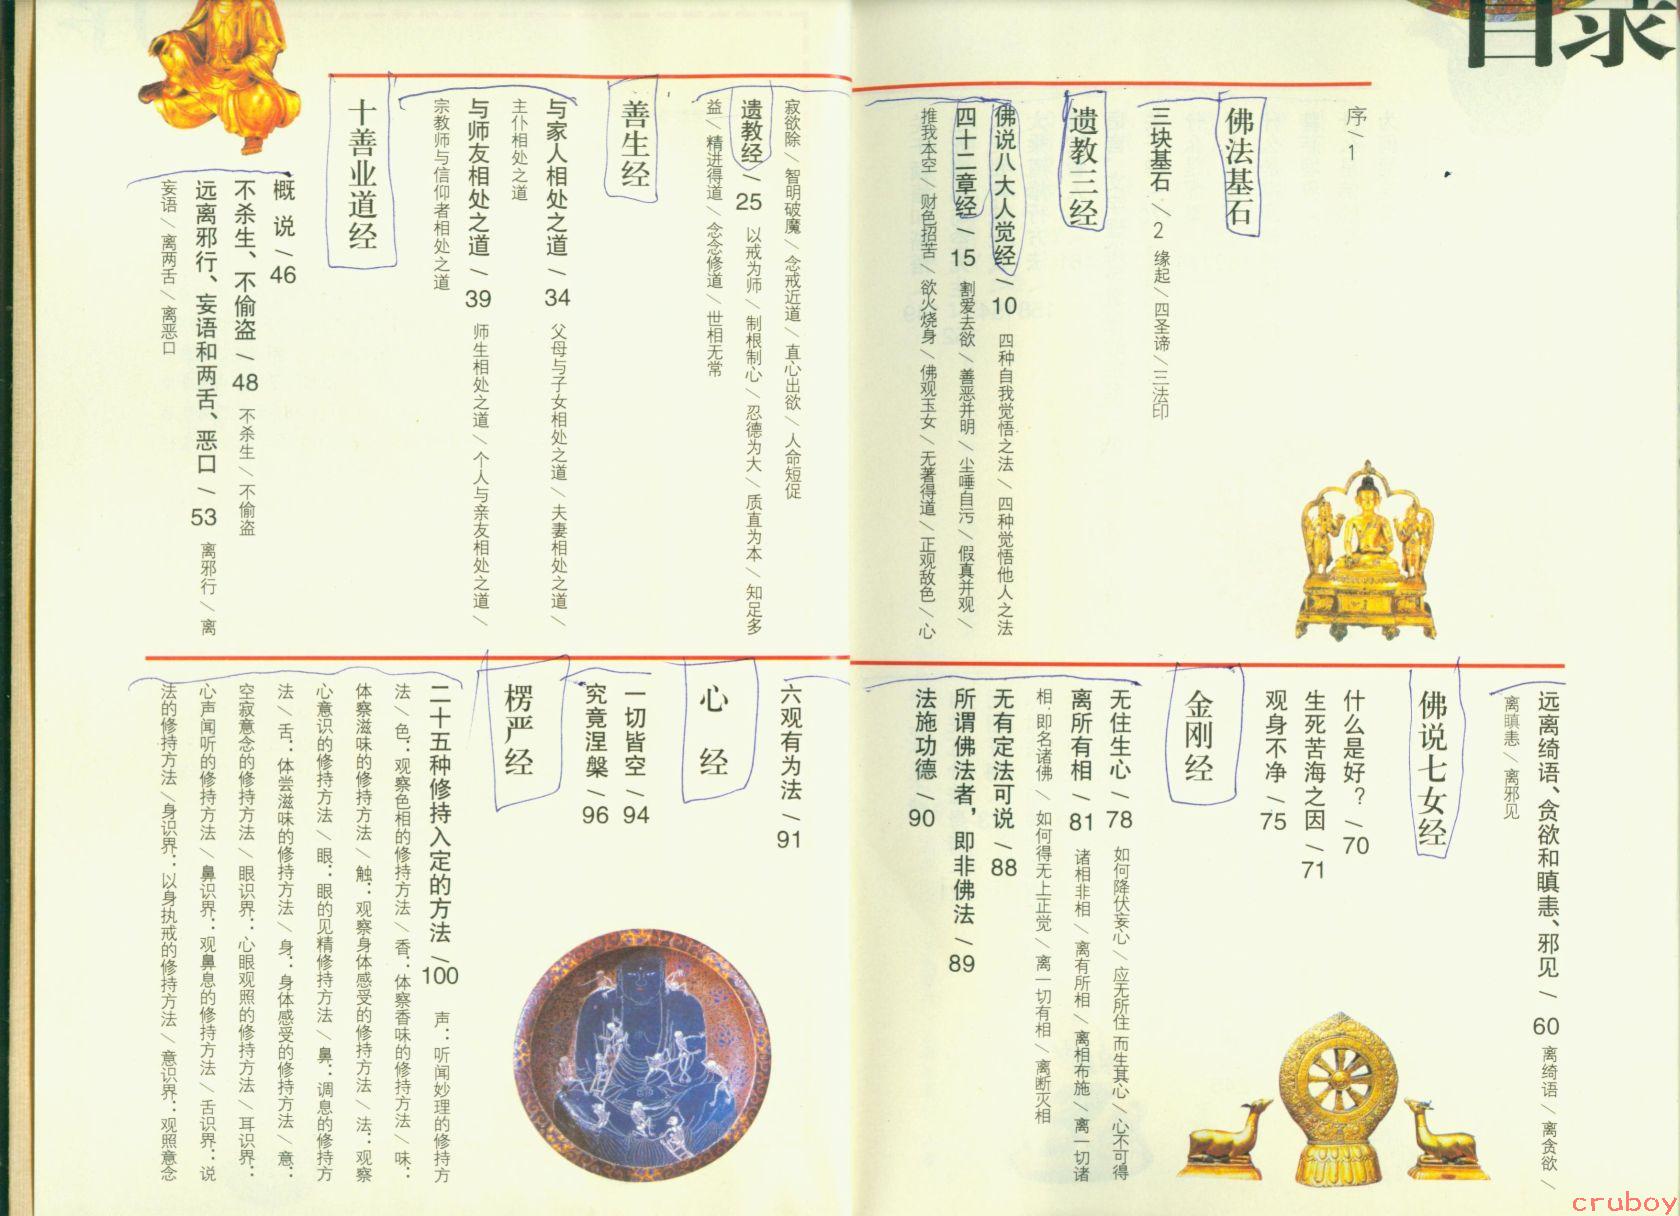 目录
序/1
佛法基石
三块基石/2 缘起/四圣谛/三法印
遗教三经
佛说八大人觉经/10 四种自我觉悟之法/四种觉悟他人之法
四十二章经/15 割爱去欲/善恶并明/尘唾自污/假真并观/
推我本空/财色招苦/欲火烧身/佛观玉女/无著得道/正观敌色/心
寂欲除/智明破魔/念戒近道/直心出欲/人命短促
遗教经/25 以戒为师/制根制心/忍德为大/质直为本/知足多
益/精进得道/念念修道/世相无常
善生经
与家人相处之道/34 父母与子女相处之道/夫妻相处之道/
主仆相处之道
与师友相处之道/39 师生相处之道/个人与亲友相处之道/
宗教师与信仰者相处之道
十善业道经
概说/46
不杀生、不偷盗/48 不杀生/不偷盗
远离邪行、妄语和两舌、恶口/53 离邪行/离
妄语/离两舌/离恶口
远离绮语、贪欲和瞋恚、邪见/60 离绮语/离贪欲/
离瞋恚/离邪见
佛说七女经
什么是好?/70
生死苦海之因/71
观身不净/75
金刚经
无住生心/78 如何降伏妄心/应无所住而生其心/心不可得
离所有相/81 诸相非相/离有所相/离相布施/离一切诸
相,即名诸佛/如何得无上正觉/离一切有相/离断灭相
无有定法可说/88
所谓佛法者,即非佛法/89
法施功德/90
六观有为法/91
心经
一切皆空/94
究竟涅槃/96
楞严经
二十五种修持入定的方法/100 声:听闻妙理的修持方
法/色:观察色相的修持方法/香:体察香味的修持方法/味:
体察滋味的修持方法/触:观察身体感受的修持方法/法:观察
心意识的修持方法/眼:眼的见精修持方法/鼻:调息的修持方
法/舌:体尝滋味的修持方法/身:身体感受的修持方法/意:
空寂意念的修持方法/眼识界:心眼观照的修持方法/耳识界:
心声闻听的修持方法/鼻识界:观鼻息的修持方法/舌识界:说
法的修持方法/身识界:以身执戒的修持方法/意识界:观照意念
cruboy